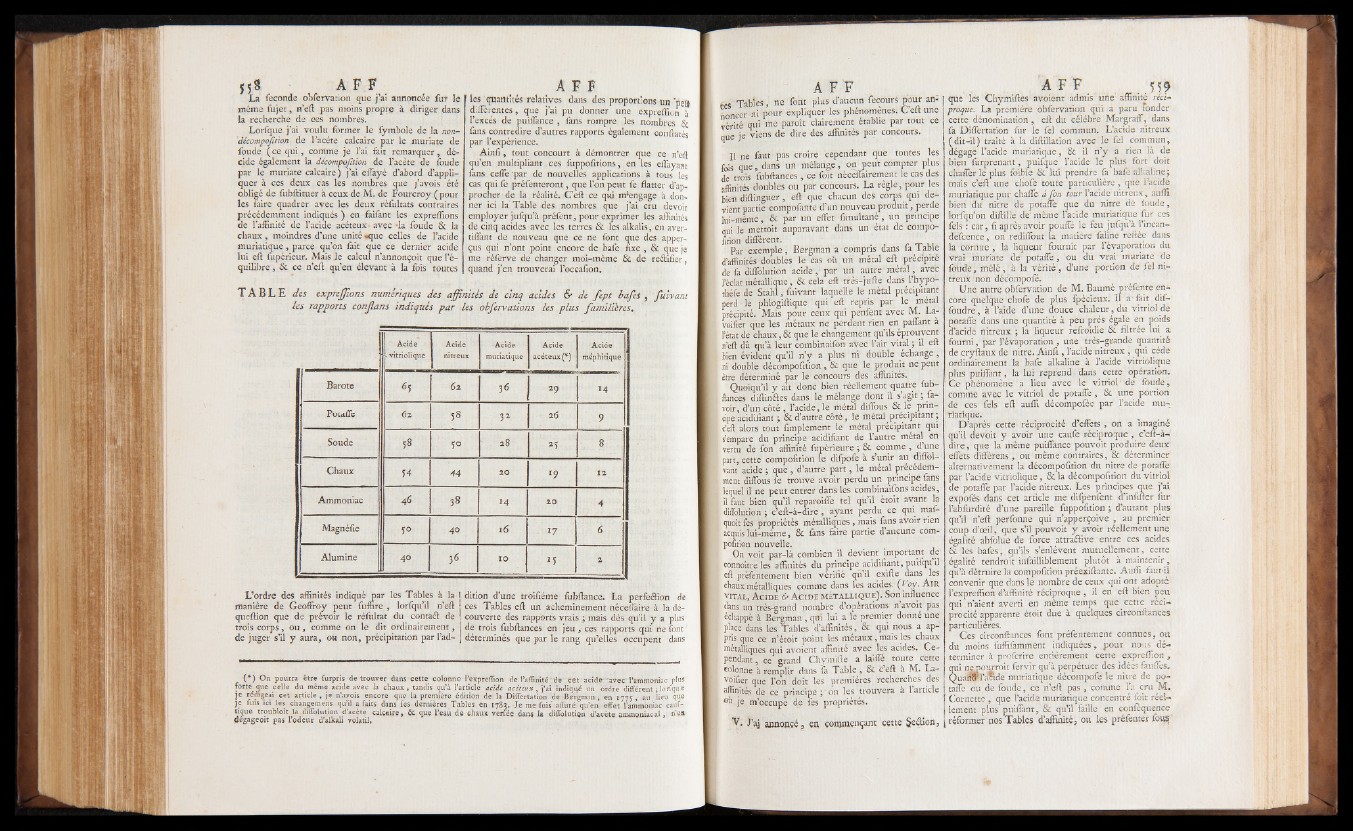 558 AFF
La seconde observation que j'ai annoncée sur le
même sujet, n'est pas moins propre à diriger dans
la recherche de ces nombres.
Lorsque j'ai voulu former le symbole de la non-
décomposition de l'acète calcaire par le muriate de
soude (ce qui, comme je l'ai fait remarquer, dé-
cide également la décomposition de l'acète de soude
par le muriate calcaire) j'ai essayé d'abord d'appli-
quer à ces deux cas les nombres que j'avois été
obligé de substituer à ceux de M. de Fourcroy (pour
les faire quadrer avec les deux résultats contraires
précédemment indiqués) en faisant les expressions
de l'affinité de l'acide acéteux avec la soude & la
chaux, moindres d'une unité que celles de l'acide
muriatique, parce qu'on sait que ce dernier acide
lui est supérieur. Mais le calcul n'annonçoit que l'é-
quilibre, & ce n'est qu'en élevant à la fois toutes
AFF
les quantités relatives dans des proportions un peu
différentes, que j'ai pu donner une expression à
l'excès de puissance, sans rompre les nombres &
sans contredire d'autres rapports également constatés
par l'expérience.
Ainsi, tout concourt à démontrer que ce n'est
qu'en multipliant ces suppositions, en les essayant
sans cesse par de nouvelles applications à tous les
cas qui se présenteront, que l'on peut se flatter d'ap-
procher de la réalité. C'est ce qui m'engage à don-
ner ici la Table des nombres que j'ai cru devoir
employer jusqu'à présent, pour exprimer les affinités
de cinq acides avec les terres & les alkalis, en aver-
tissant de nouveau que ce ne sont que des apper-
çus qui n'ont point encore de base fixe, & que je
me réserve de changer moi-même & de rectifier,
quand j'en trouverai l'occasion.
TABLE des expressions numériques des affinités de cinq acides & de sept bases, suivant
les rapports constans indiqués par les observations les plus familières.
Acide vitriolique Acide nitreux Acide muriatique Acide acéteux (*) Acide méphitique
Barote 65 62 36 29 14
Potasse 62 58 32 26 9
Soude 58 50 28 25 8
Chaux 54 44 20 19 12
Ammoniac 46 38 14 20 4
Magnésie 50 40 16 17 6
Alumine 40 36 10 15 2
L'ordre des affinités indiqué par les Tables à la
manière de Geoffroy peut suffire, lorsqu'il n'est
question que de prévoir le résultat du contact de
trois corps, ou, comme on le dit ordinairement,
de juger s'il y aura, ou non, précipitation par l'ad-
dition d'une troisième substance. La perfection de
ces Tables est un acheminement nécessaire à la dé-
couverte des rapports vrais; mais dès qu'il y a plus
de trois substances en jeu, ces rapports qui ne sont
déterminés que par le rang qu'elles occupent dans
(*) On pourra être surpris de trouver dans cette colonne l'expression de l'affinité de cet acide avec l'ammoniac plus
forte que celle du même acide avec la chaux, tandis qu'à l'article acide acéteux, j'ai indiqué un ordre différent; lorsque
je rédigeai cet article, je n'avois encore que la première édition de la Dissertation de Bergman, en 1775, au lieu que
je suis ici les changemens qu'il a faits dans les dernières Tables en 1783. Je me suis assuré qu'en effet l'ammoniac caus-
tique troubloit la dissolution d'acète calcaire, & que l'eau de chaux versée dans la dissolution d'acète ammoniacal, n'en
dégageoit pas l'odeur d'alkali volatil.
AFF
ces Tables, ne sont plus d'aucun secours pour an-
noncer ni pour expliquer les phénomènes. C'est une
vérité qui me paroît clairement établie par tout ce
que je viens de dire des affinités par concours.
Il ne faut pas croire cependant que toutes les
fois que, dans un mélange, on peut compter plus
de trois substances, ce soit nécessairement le cas des
affinités doubles ou par concours. La règle, pour les
bien distinguer, est que chacun des corps qui de-
vient partie composante d'un nouveau produit, perde
lui-même, & par un effet simultané, un principe
qui le mettoit auparavant dans un état de compo-
sition différent.
Par exemple, Bergman a compris dans sa Table
d'affinités doubles le cas où un métal est précipité
de sa dissolution acide, par un autre métal, avec
l'éclat métallique, & cela est très-juste dans l'hypo-
thèse de Stahl, suivant laquelle le métal précipitant
perd le phlogistique qui est repris par le métal
précipité. Mais pour ceux qui pensent avec M. La-
voisier que les métaux ne perdent rien en passant à
l'état de chaux, & que le changement qu'ils éprouvent
n'est dû qu'à leur combinaison avec l'air vital; il est
bien évident qu'il n'y a plus ni double échange,
ni double décomposition, & que le produit ne peut
être déterminé par le concours des affinités.
Quoiqu'il y ait donc bien réellement quatre sub-
stances distinctes dans le mélange dont il s'agit; sa-
voir, d'un côté, l'acide, le métal dissous & le prin-
cipe acidifiant; & d'autre côté, le métal précipitant;
c'est alors tout simplement le métal précipitant qui
s'empare du principe acidifiant de l'autre métal en
vertu de son affinité supérieure; & comme, d'une
part, cette composition le dispose à s'unir au dissol-
vant acide; que, d'autre part, le métal précédem-
ment dissous se trouve avoir perdu un principe sans
lequel il ne peut entrer dans les combinaisons acides,
il faut bien qu'il reparoisse tel qu'il étoit avant la
dissolution; c'est-à-dire, ayant perdu ce qui mas-
quoit ses propriétés métalliques, mais sans avoir rien
acquis lui-même, & sans faire partie d'aucune com-
position nouvelle.
On voit par-là combien il devient important de
connoître les affinités du principe acidifiant, puisqu'il
est présentement bien vérifié qu'il existe dans les
chaux métalliques comme dans les acides. (Voy. AIR
VITAL, ACIDE & ACIDE MÉTALLIQUE). Son influence
dans un très-grand nombre d'opérations n'avoit pas
échappé à Bergman, qui lui a le premier donné une
place dans les Tables d'affinités, & qui nous a ap-
pris que ce n'étoit point les métaux, mais les chaux
métalliques qui avoient affinité avec les acides. Ce-
pendant, ce grand Chymiste a laissé toute cette
colonne à remplir dans sa Table, & c'est à M. La-
voisier que l'on doit les premières recherches des
affinités de ce principe; on les trouvera à l'article
où je m'occupe de ses propriétés.
V. J'ai annoncé, en commençant cette Section,
AFF 559
que les Chymistes avoient admis une affinité réci-
proque. La première observation qui a paru fonder
cette dénomination, est du célèbre Margraff, dans
sa Dissertation sur le sel commun. L'acide nitreux
(dit-il) traité à la distillation avec le sel commun,
dégage l'acide muriatique, & il n'y a rien là de
bien surprenant, puisque l'acide le plus fort doit
chasser le plus foible & lui prendre sa base alkaline;
mais c'est une chose toute particulière, que l'acide
muriatique pur chasse à son tour l'acide nitreux, aussi
bien du nitre de potasse que du nitre de soude,
lorsqu'on distille de même l'acide muriatique sur ces
sels: car, si après avoir poussé le feu jusqu'à l'incan-
descence, on redissout la matière saline restée dans
la cornue, la liqueur fournit par l'évaporation du
vrai muriate de potasse, ou du vrai muriate de
soude, mêlé, à la vérité, d'une portion de sel ni-
treux non décomposé.
Une autre observation de M. Baumé présente en-
core quelque chose de plus spécieux. Il a fait dis-
soudre, à l'aide d'une douce chaleur, du vitriol de
potasse dans une quantité à peu près égale en poids
d'acide nitreux; la liqueur refroidie & filtrée lui a
fourni, par l'évaporation, une très-grande quantité
de crystaux de nitre. Ainsi, l'acide nitreux, qui cède
ordinairement la base alkaline à l'acide vitriolique
plus puissant, la lui reprend dans cette opération.
Ce phénomène a lieu avec le vitriol de soude,
comme avec le vitriol de potasse, & une portion
de ces sels est aussi décomposée par l'acide mu-
riatique.
D'après cette réciprocité d'effets, on a imaginé
qu'il devoit y avoir une cause réciproque, c'est-à-
dire, que la même puissance pouvoit produire deux
effets différens, ou même contraires, & déterminer
alternativement la décomposition du nitre de potasse
par l'acide vitriolique, & la décomposition du vitriol
de potasse par l'acide nitreux. Les principes que j'ai
exposés dans cet article me dispensent d'insister sur
l'absurdité d'une pareille supposition; d'autant plus
qu'il n'est personne qui n'apperçoive, au premier
coup d'œil, que s'il pouvoit y avoir réellement une
égalité absolue de force attractive entre ces acides
& les bases, qu'ils s'enlèvent mutuellement, cette
égalité tendroit infailliblement plutôt à maintenir,
qu'à détruire la composition préexistante. Aussi faut-il
convenir que dans le nombre de ceux qui ont adopté
l'expression d'affinité réciproque, il en est bien peu
qui n'aient averti en même temps que cette réci-
procité apparente étoit due à quelques circonstances
particulières.
Ces circonstances sont présentement connues, ou
du moins suffisamment indiquées, pour nous dé-
terminer à proscrire entièrement cette expression,
qui ne pourroit servir qu'à perpétuer des idées fausses.
Quand l'acide muriatique décompose le nitre de po-
tasse ou de soude, ce n'est pas, comme l'a cru M.
Cornette, que l'acide muriatique concentré soit réel-
lement plus puissant, & qu'il faille en conséquence
réformer nos Tables d'affinité, ou les présenter sous